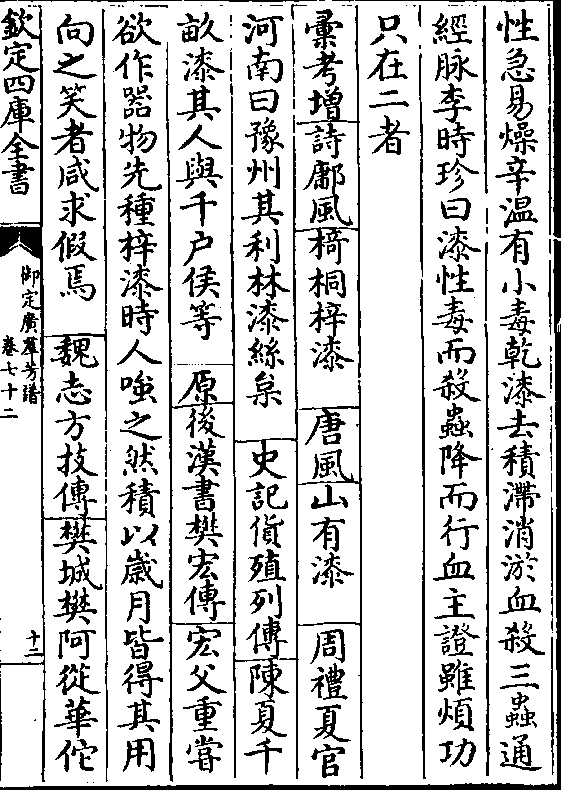 性急易燥辛温有小毒乾漆去積滯消淤血殺三蟲通
經脉李時珍曰漆性毒而殺蟲降而行血主證雖煩功
只在二者
彚考增詩鄘風椅桐梓漆　唐風山有漆　周禮夏官
河南曰豫州其利林漆絲枲　史記貨殖列傳陳夏千
畝漆其人與千户侯等　原後漢書樊宏傳宏父重嘗
欲作器物先種梓漆時人嗤之然積以歲月皆得其用
向之笑者咸求假焉　魏志方技傳樊城樊阿從華佗
欽定四庫全書
御定廣羣芳譜
卷七十二
十二